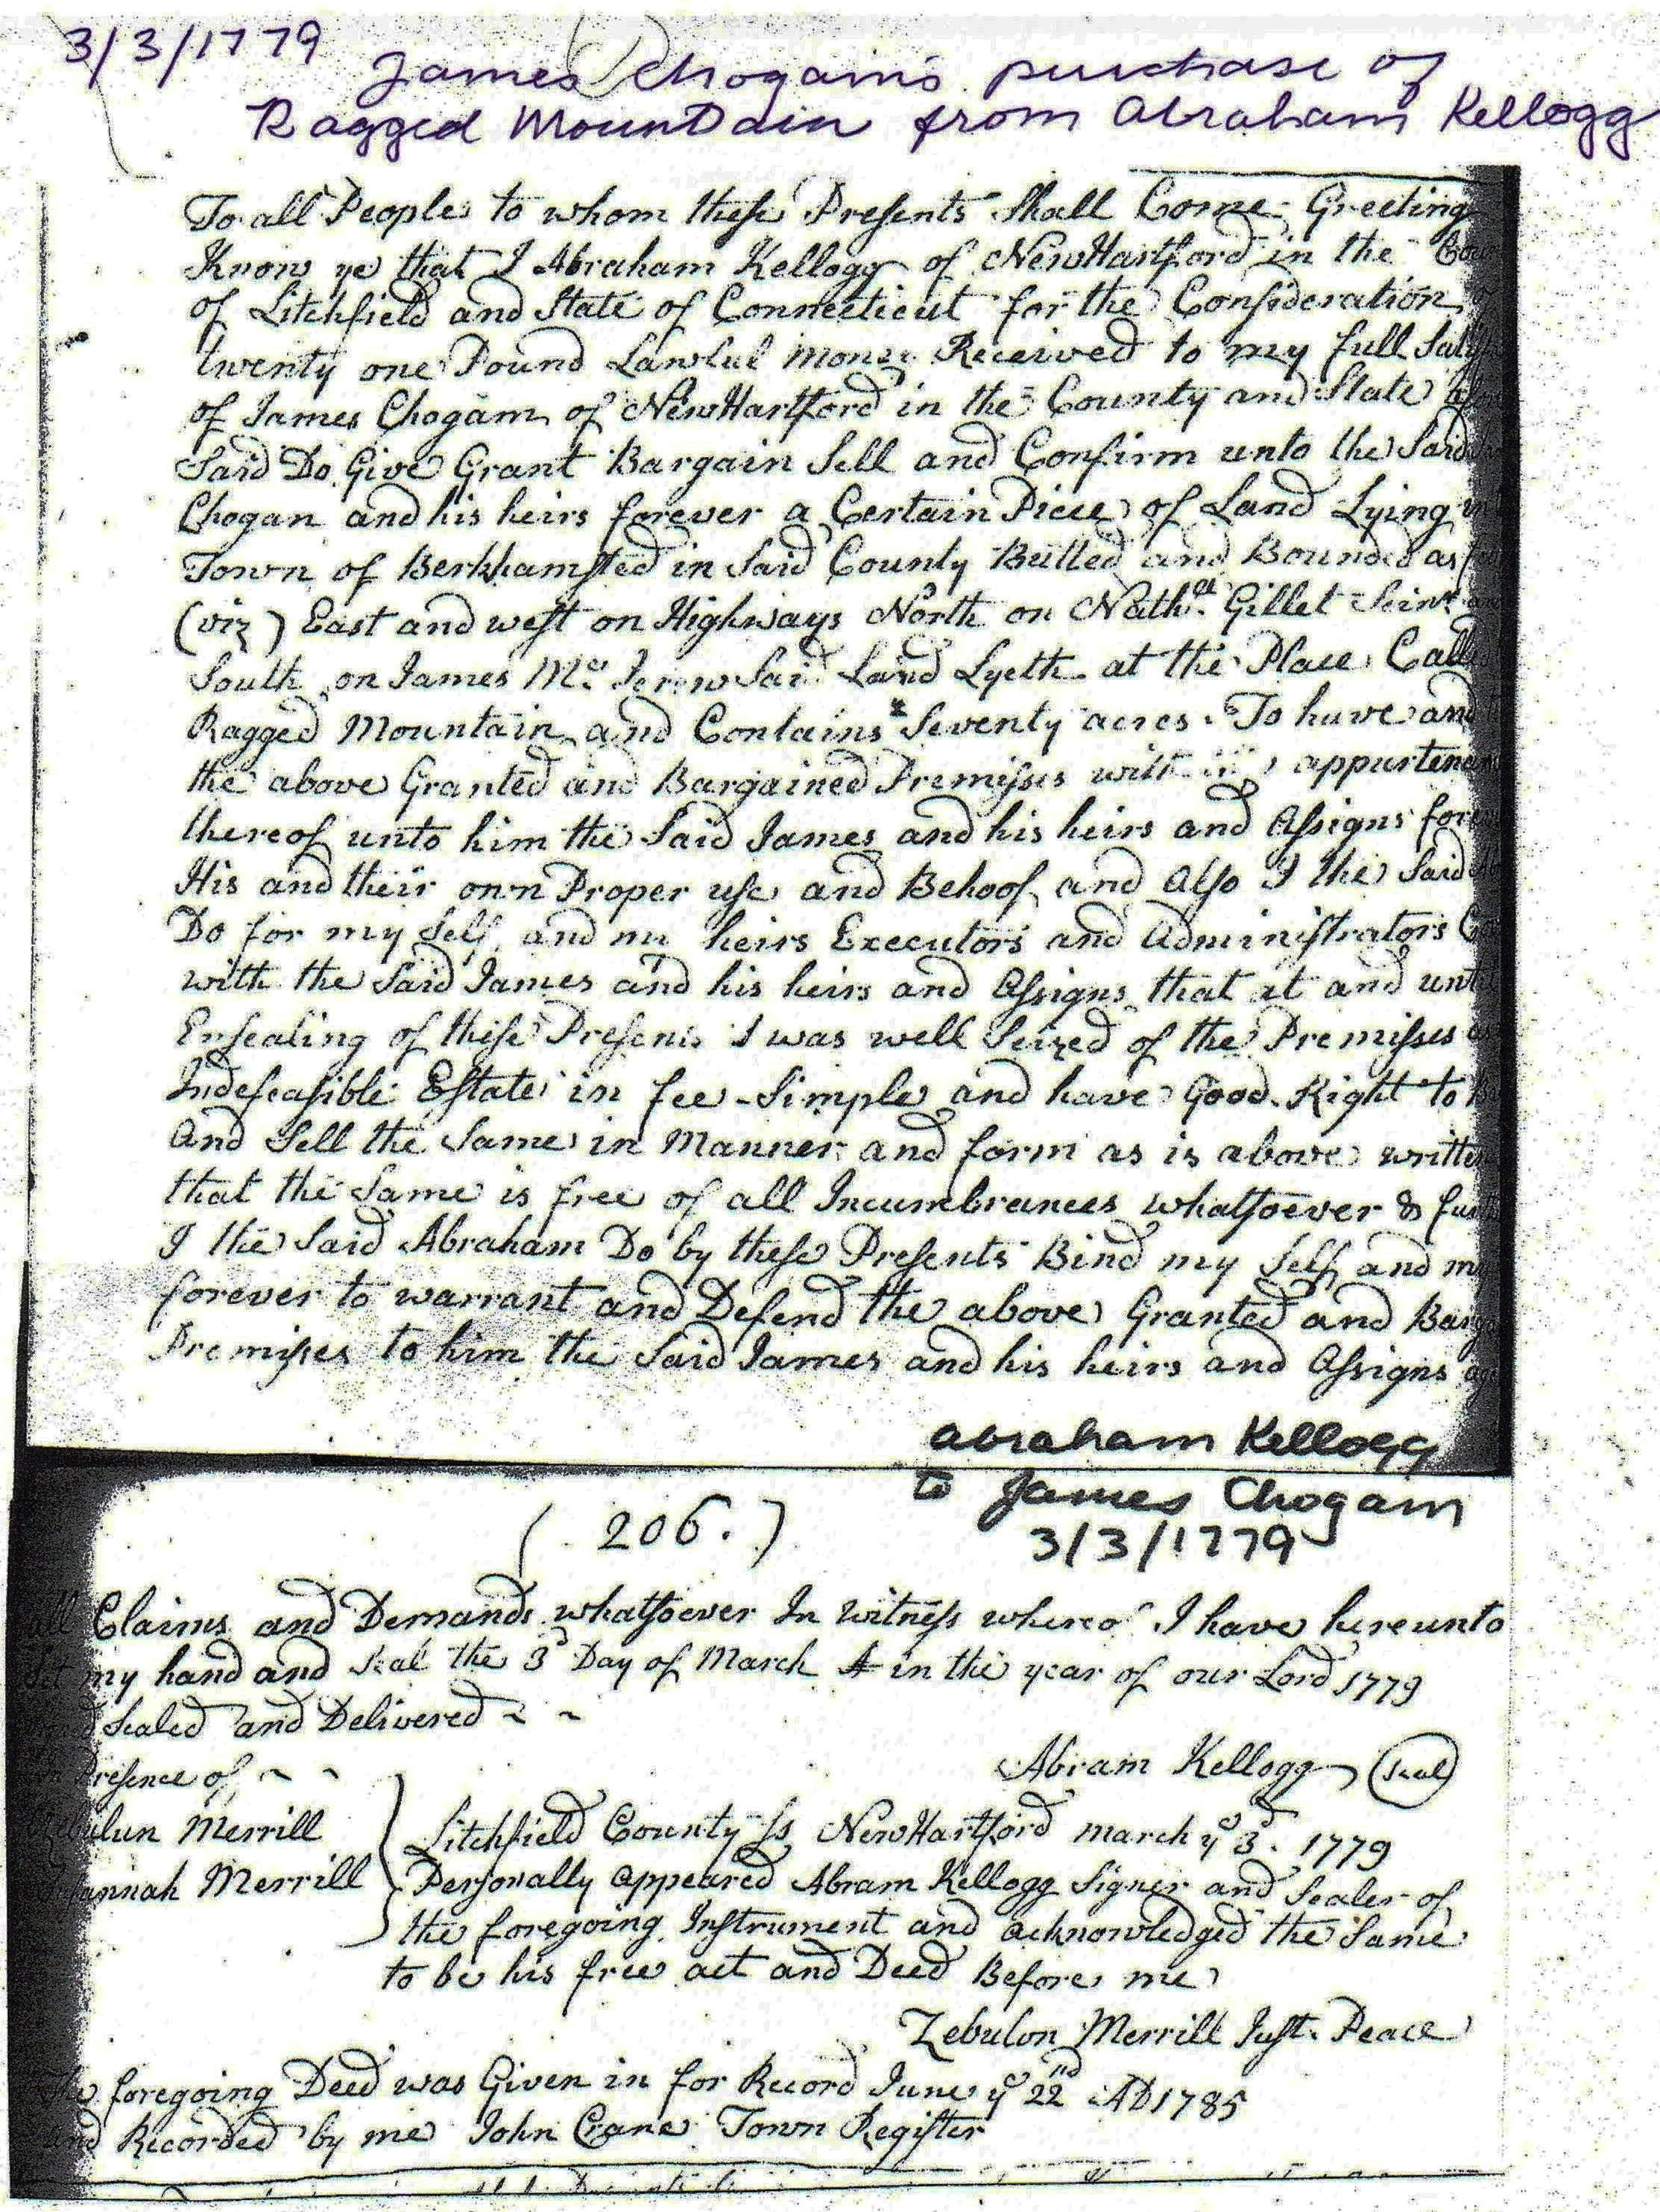 3/3/1779
James Chogam's purchase of
Ragged Mountain from Abraham Kellogg
To all People to whom these Presents Shall Come Greeting
Know ye that I Abraham Kellogg of NewHartford in the
of Litchfield and State of Connecticut for the Consideration
twenty one Pound Lawful Money Received to my full
of James Chogam of NewHartford in the County and State
Said Do Give Grant Bargain Sell and Confirm unto the Said
Chogan and his heirs forever a Certain Piece of Land Lying
Town of Berkhamsted in Said County Butted and Bounded as
(viz) East and west on Highways North on Nathll. Gillet
South on James Said Land Lyeth at the Place
Ragged Mountain and Contains Seventy acres To have and
the above Granted and Bargained Premisses with
thereof unto him the Said James and his heirs and Assigns
His and their own Proper use and Behoof and Also I the Said
Do for my Self and my heirs Executors and Administrators
with the Said James and his heirs and Assigns that at and
Ensealing of these Presents I was well Seized of the Premisses
Indefeasible Estate in fee-Simple and have Good Right to
And Sell the Same in Manner and form as is above written
that the Same is free of all Incumbrances whatsoever &
I the Said Abraham Do by these Presents Bind my Self and
forever to warrant and Defend the above Granted and
Premisses to him the Said James and his heirs and Assigns
Abraham Kellogg
to James Chogam
3/3/1779
(206.)
all Claims and Demands whatsoever In Witness whereof I have hereunto
Set my hand and Seal the 3d Day of March A in the year of our Lord 1779
Sealed and Delivered ~ ~
Presence of ~ ~
Abram Kellogg (Seal)
Zebulun Merrill
Merrill
Litchfield County Ss NewHartford march ye 3d. 1779
Personally appeared Abram Kellogg Signer and Sealer of
the foregoing Instrument and acknowledged the Same
to be his free act and Deed Before me
Zebulon Merrill Just. Peace
The foregoing Deed was Given in for Record June ye 22nd AD1785
and Recorded by me John Crane Town Register